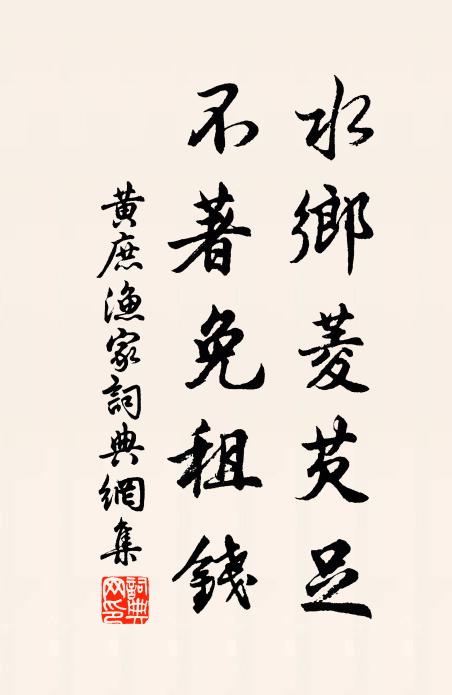 水鄉菱芡足
不著免租錢
黃庶漁家詞典網集
詞典網印